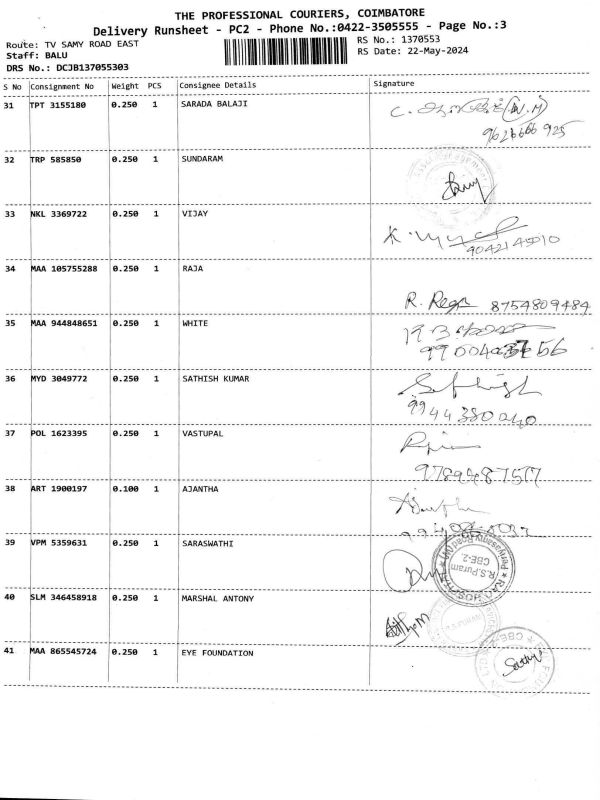 THE PROFESSIONAL COURIERS, COIMBATORE
Delivery Runsheet - PC2 - Phone No.:0422-3505555 - Page No.:3
Route: TV SAMY ROAD EAST
Staff: BALU
DRS No.: DCJB137055303
RS No.: 1370553
RS Date: 22-May-2024
S No Consignment No Weight PCS Consignee Details Signature
31 TPT 3155180 0.250 1 SARADA BALAJI
32 TRP 585850 0.250 1 SUNDARAM
33 NKL 3369722 0.250 1 VIJAY
34 MAA 105755288 0.250 1 RAJA
R. Rega 8754809484
35 MAA 944848651 0.250 1 WHITE
36 MYD 3049772 0.250 1 SATHISH KUMAR
Sathish
9944380040
37 POL 1623395 0.250 1 VASTUPAL
38 ART 1900197 0.100 1 AJANTHA
39 VPM 5359631 0.250 1 SARASWATHI
R.S.Puram
CBE-2.
40 SLM 346458918 0.250 1 MARSHAL ANTONY
41 MAA 865545724 0.250 1 EYE FOUNDATION